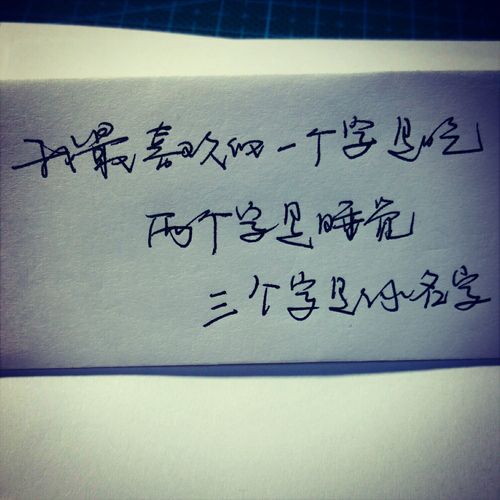 我最喜欢的一个字是吃
两个字是睡觉
三个字是你名字